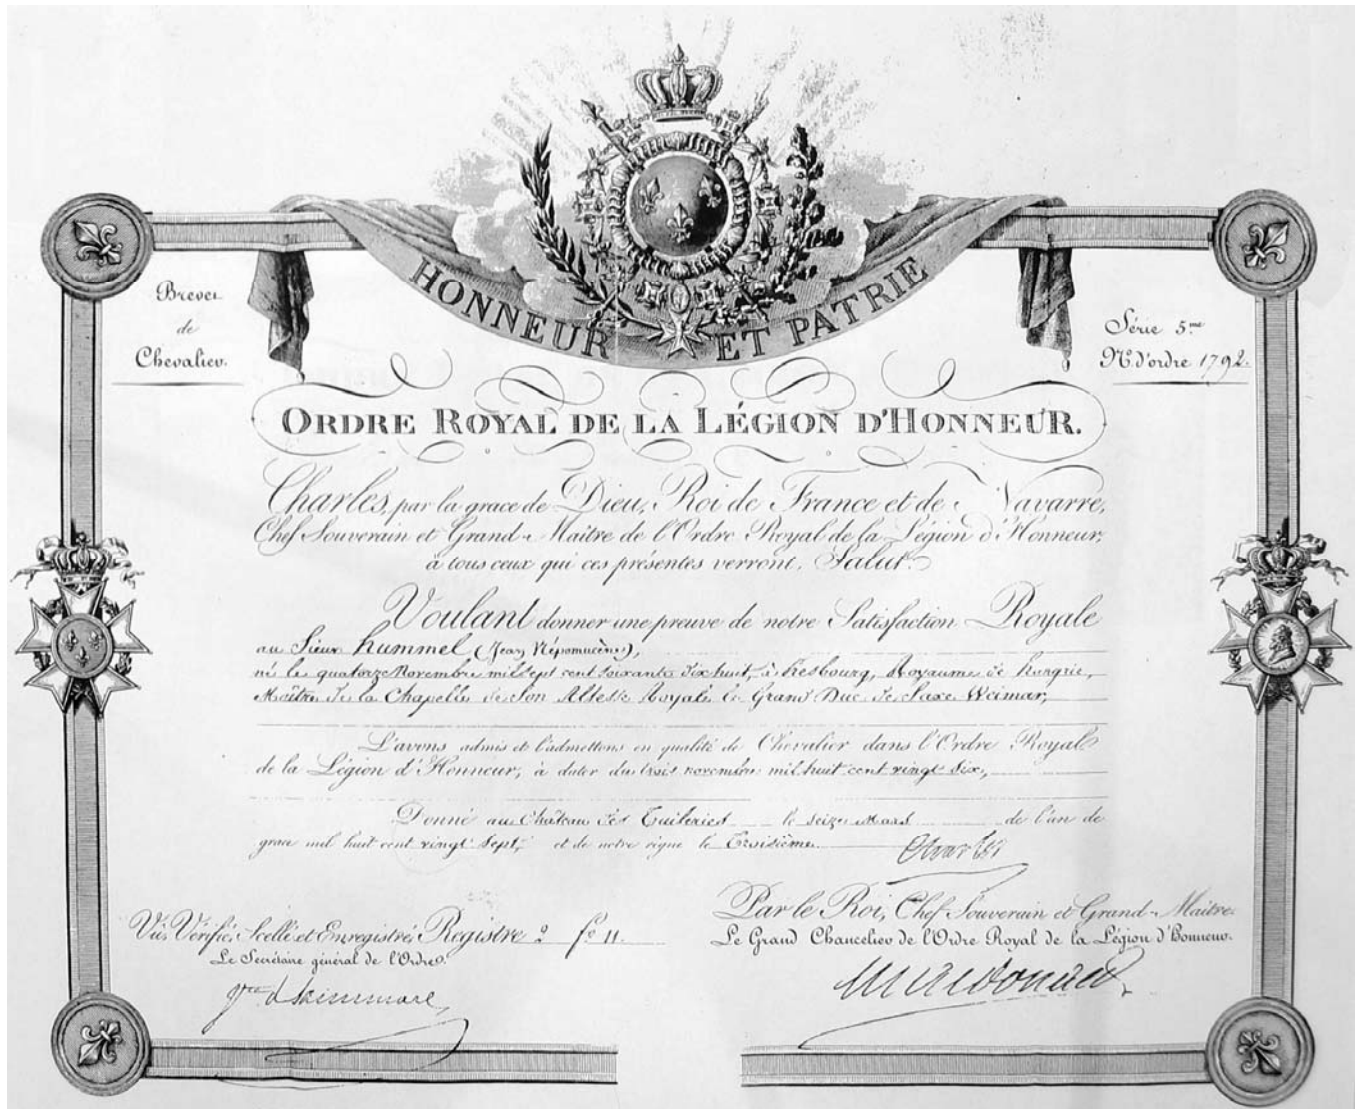 HONNEUR ET PATRIE
Brevet
de
Chevalier.
Série 5.me
N.o d'ordre 1792.
ORDRE ROYAL DE LA LÉGION D'HONNEUR.
Charles, par la grace de Dieu, Roi de France et de Navarre,
Chef Souverain et Grand-Maître de l'Ordre Royal de la Légion d'Honneur,
à tous ceux qui ces présentes verront, Salut.
Voulant donner une preuve de notre Satisfaction Royale
au Sieur hummel (Jean Népomucène),
né le quatorze Novembre mil sept cent soixante dix huit, à Presbourg, Royaume de hongrie,
Maître de la Chapelle de Son Altesse Royale le Grand Duc de Saxe Weimar,
L'avons admis et l'admettons en qualité de Chevalier dans l'Ordre Royal
de la Légion d'Honneur, à dater du trois novembre mil huit cent vingt Six,
Donné au Château des Tuileries le Seize Mars de l'an de
grace mil huit cent vingt Sept, et de notre règne le Troisième.
Charles
Par le Roi, Chef Souverain et Grand-Maître.
Le Grand Chancelier de l'Ordre Royal de la Légion d'Honneur.
Macdonald
Vu, Vérifié, Scellé et Enregistré, Registre 2 f.o 11.
Le Secrétaire général de l'Ordre.